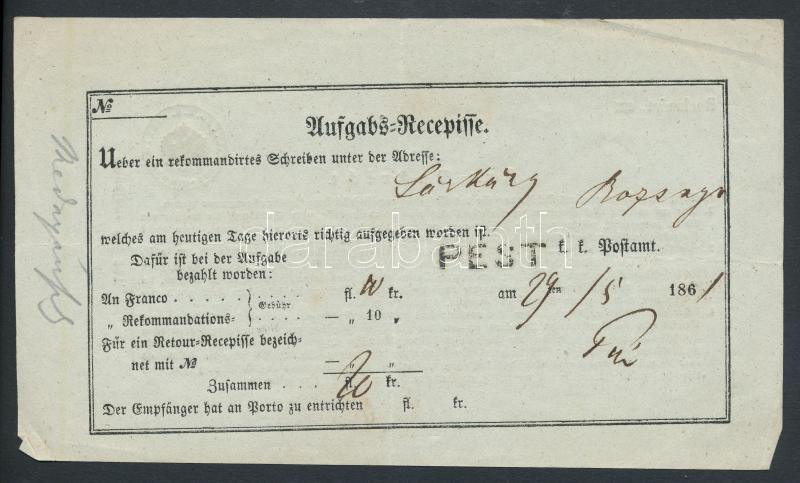 №
Aufgabs-Recepisse.
Ueber ein rekommandirtes Schreiben unter der Adresse:
welches am heutigen Tage hierorts richtig aufgegeben worden ist.
darabanth
Dafür ist bei der Aufgabe
bezahlt worden:
PEST k. k. Postamt.
An Franco . . . . . fl. 10 kr.
Gebühr
am 29ten /5 1861
„ Rekommandations- — „ 10 „
Für ein Retour-Recepisse bezeich-
net mit № — „ „
Zusammen . . . . fl. 20 kr.
Der Empfänger hat an Porto zu entrichten fl. kr.